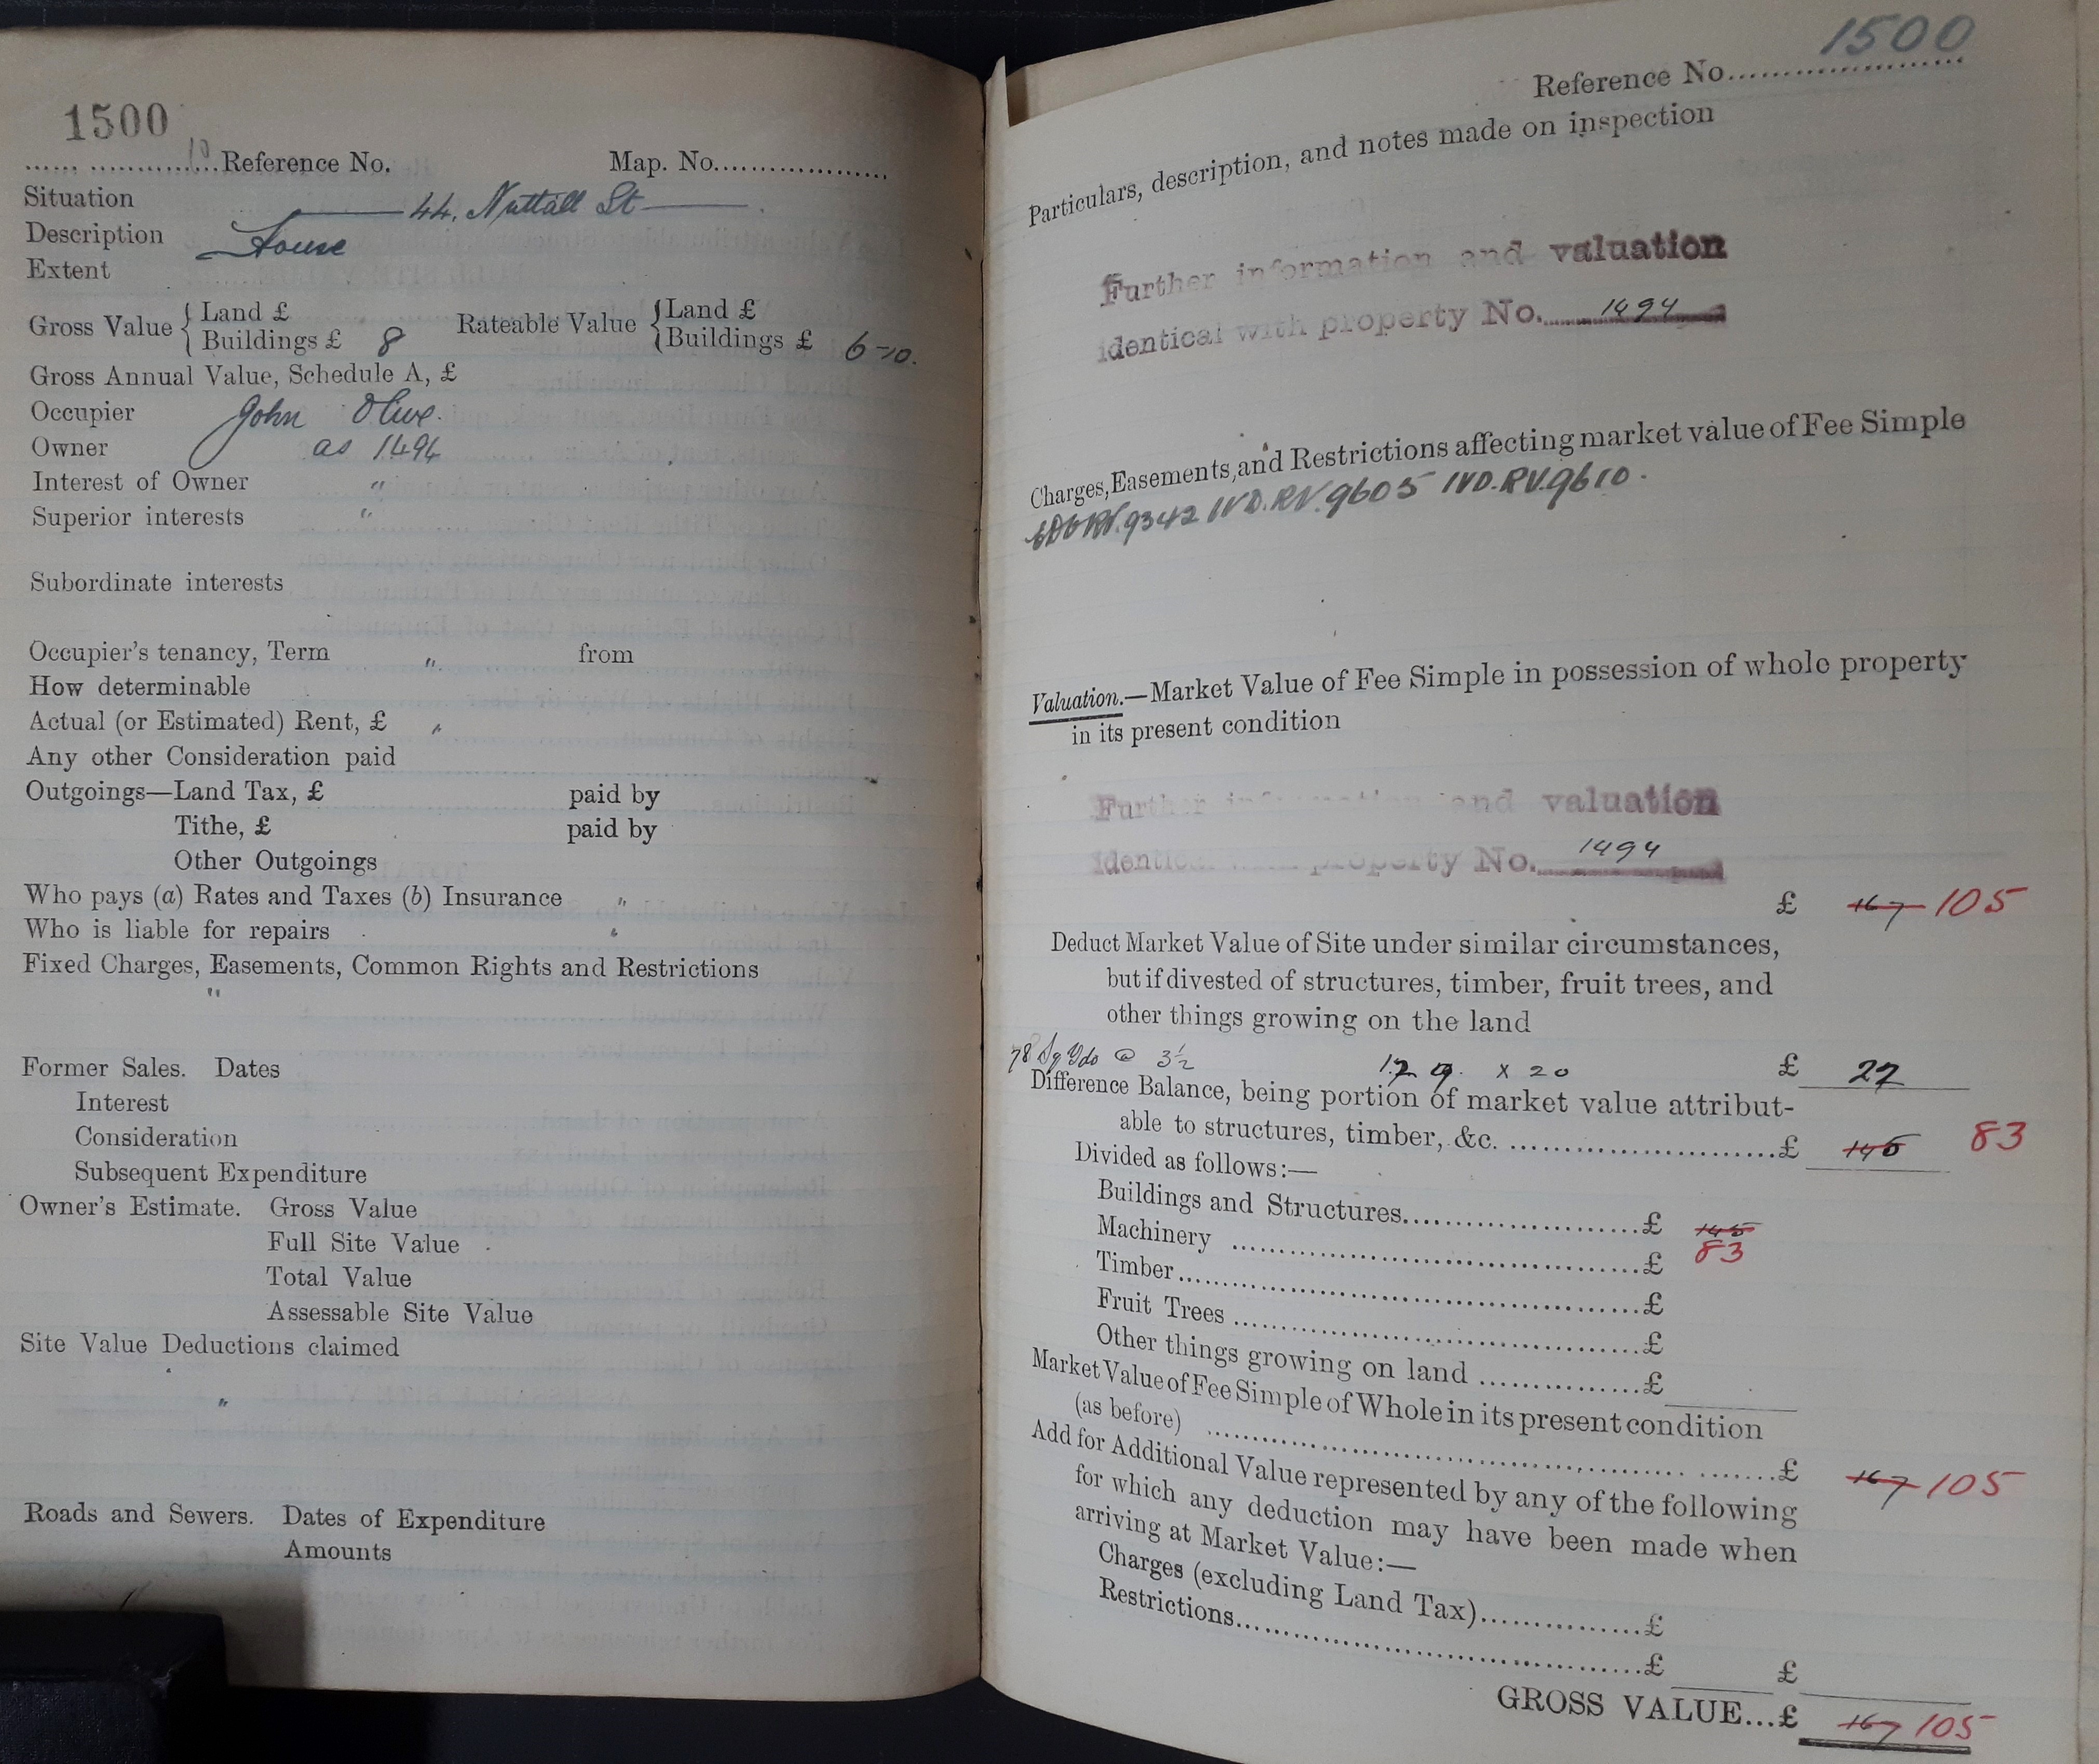 1500
10
Reference No. Map. No.
Situation 44, Nuttall St
Description House
Extent
Gross Value { Land £ Rateable Value { Land £
Buildings £ 8 Buildings £ 6-10.
Gross Annual Value, Schedule A, £
Occupier John Olive.
Owner as 1494
Interest of Owner "
Superior interests "
Subordinate interests
Occupier's tenancy, Term " from
How determinable
Actual (or Estimated) Rent, £ "
Any other Consideration paid
Outgoings—Land Tax, £ paid by
Tithe, £ paid by
Other Outgoings
Who pays (a) Rates and Taxes (b) Insurance "
Who is liable for repairs "
Fixed Charges, Easements, Common Rights and Restrictions
"
Former Sales. Dates
Interest
Consideration
Subsequent Expenditure
Owner's Estimate. Gross Value
Full Site Value
Total Value
Assessable Site Value
Site Value Deductions claimed
"
Roads and Sewers. Dates of Expenditure
Amounts
1500
Reference No.
Particulars, description, and notes made on inspection
Further information and valuation
identical with property No. 1494
Charges, Easements, and Restrictions affecting market value of Fee Simple
9342 IVD.RV.9605 IVD.RV.9610.
Valuation.—Market Value of Fee Simple in possession of whole property
in its present condition
Further information and valuation
identical with property No. 1494
£ 167 105
Deduct Market Value of Site under similar circumstances,
but if divested of structures, timber, fruit trees, and
other things growing on the land
78 Sq Yds @ 3½ x 20 £ 22
Difference Balance, being portion of market value attribut-
able to structures, timber, &c. £ 145 83
Divided as follows:—
Buildings and Structures £ 145
83
Machinery £
Timber £
Fruit Trees £
Other things growing on land £
Market Value of Fee Simple of Whole in its present condition
(as before) £ 167 105
Add for Additional Value represented by any of the following
for which any deduction may have been made when
arriving at Market Value:—
Charges (excluding Land Tax) £
Restrictions £ £
GROSS VALUE...£ 167 105